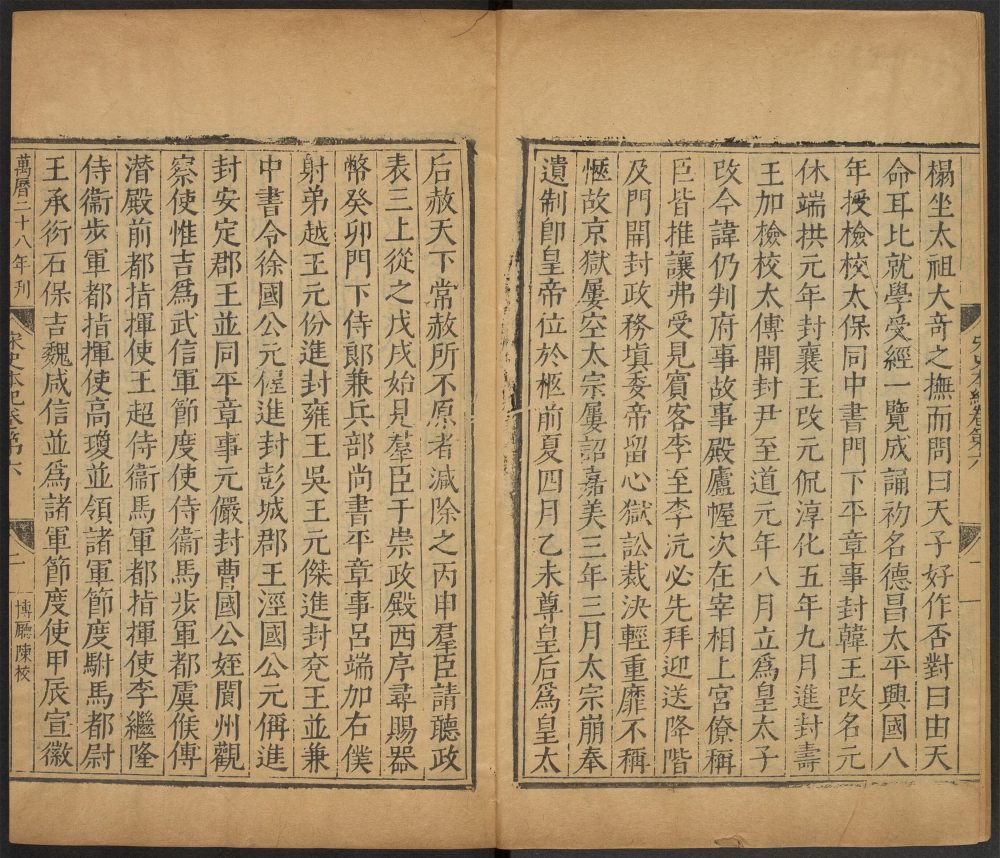 榻坐太祖大奇之撫而問曰天子好作否對曰由天
命耳比就學受經一覽成誦初名德昌太平興國八
年授檢校太保同中書門下平章事封韓王改名元
休端拱元年封襄王改元侃淳化五年九月進封壽
王加檢校太傅開封尹至道元年八月立爲皇太子
改今諱仍判府事故事殿廬幄次在宰相上宮僚稱
臣皆推讓弗受見賓客李至李沆必先拜迎送降階
及門開封政務塡委帝留心獄訟裁決輕重靡不稱
愜故京獄屢空太宗屢詔嘉美三年三月太宗崩奉
遺制卽皇帝位於柩前夏四月乙未尊皇后爲皇太
后赦天下常赦所不原者減除之丙申羣臣請聽政
表三上從之戊戌始見羣臣于崇政殿西序尋賜器
幣癸卯門下侍郞兼兵部尚書平章事呂端加右僕
射弟越王元份進封雍王吳王元傑進封兗王並兼
中書令徐國公元偓進封彭城郡王涇國公元偁進
封安定郡王並同平章事元儼封曹國公姪閬州觀
察使惟吉爲武信軍節度使侍衞馬步軍都虞候傅
潛殿前都指揮使王超侍衞馬軍都指揮使李繼隆
侍衞步軍都指揮使高瓊並領諸軍節度駙馬都尉
王承衍石保吉魏咸信並爲諸軍節度使甲辰宣徽
萬曆二十八年刊
宋史本紀卷第六
二
博廳陳校